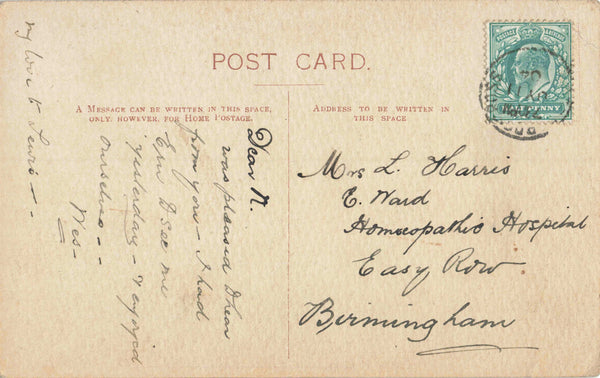 POST CARD.
A MESSAGE CAN BE WRITTEN IN THIS SPACE,
ONLY, HOWEVER, FOR HOME POSTAGE.
ADDRESS TO BE WRITTEN IN
THIS SPACE
HALF PENNY
Dear N.
was pleased to hear
from you – I had
Ern to see me
yesterday – & enjoyed
ourselves – –
Wes –
my love to Lewis – –
Mrs L. Harris
E. Ward
Homœopathic Hospital
Easy Row.
Birmingham